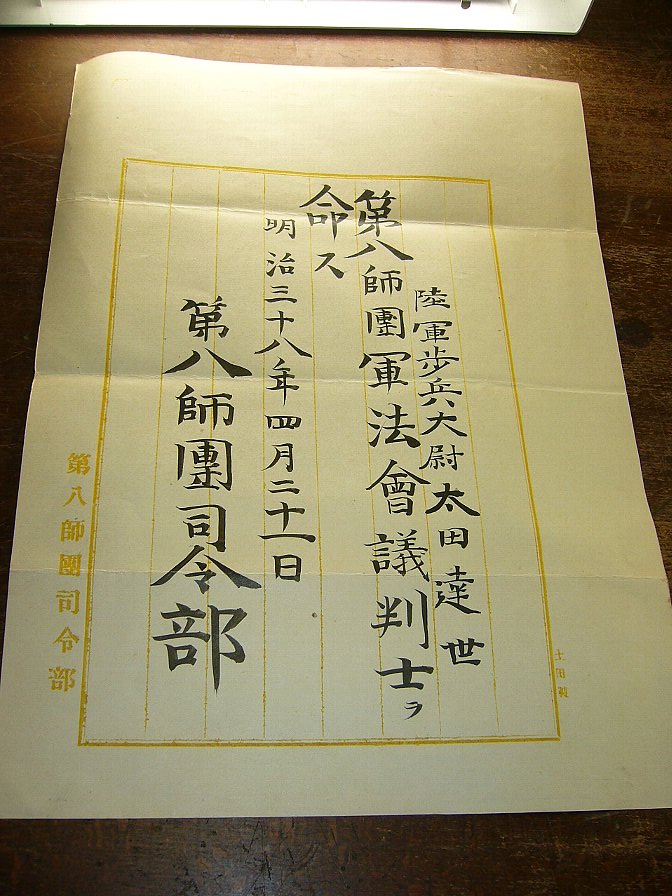 陸軍歩兵大尉太田達世
第八師團軍法會議判士ヲ
命ス
明治三十八年四月二十一日
第八師團司令部
第八師團司令部